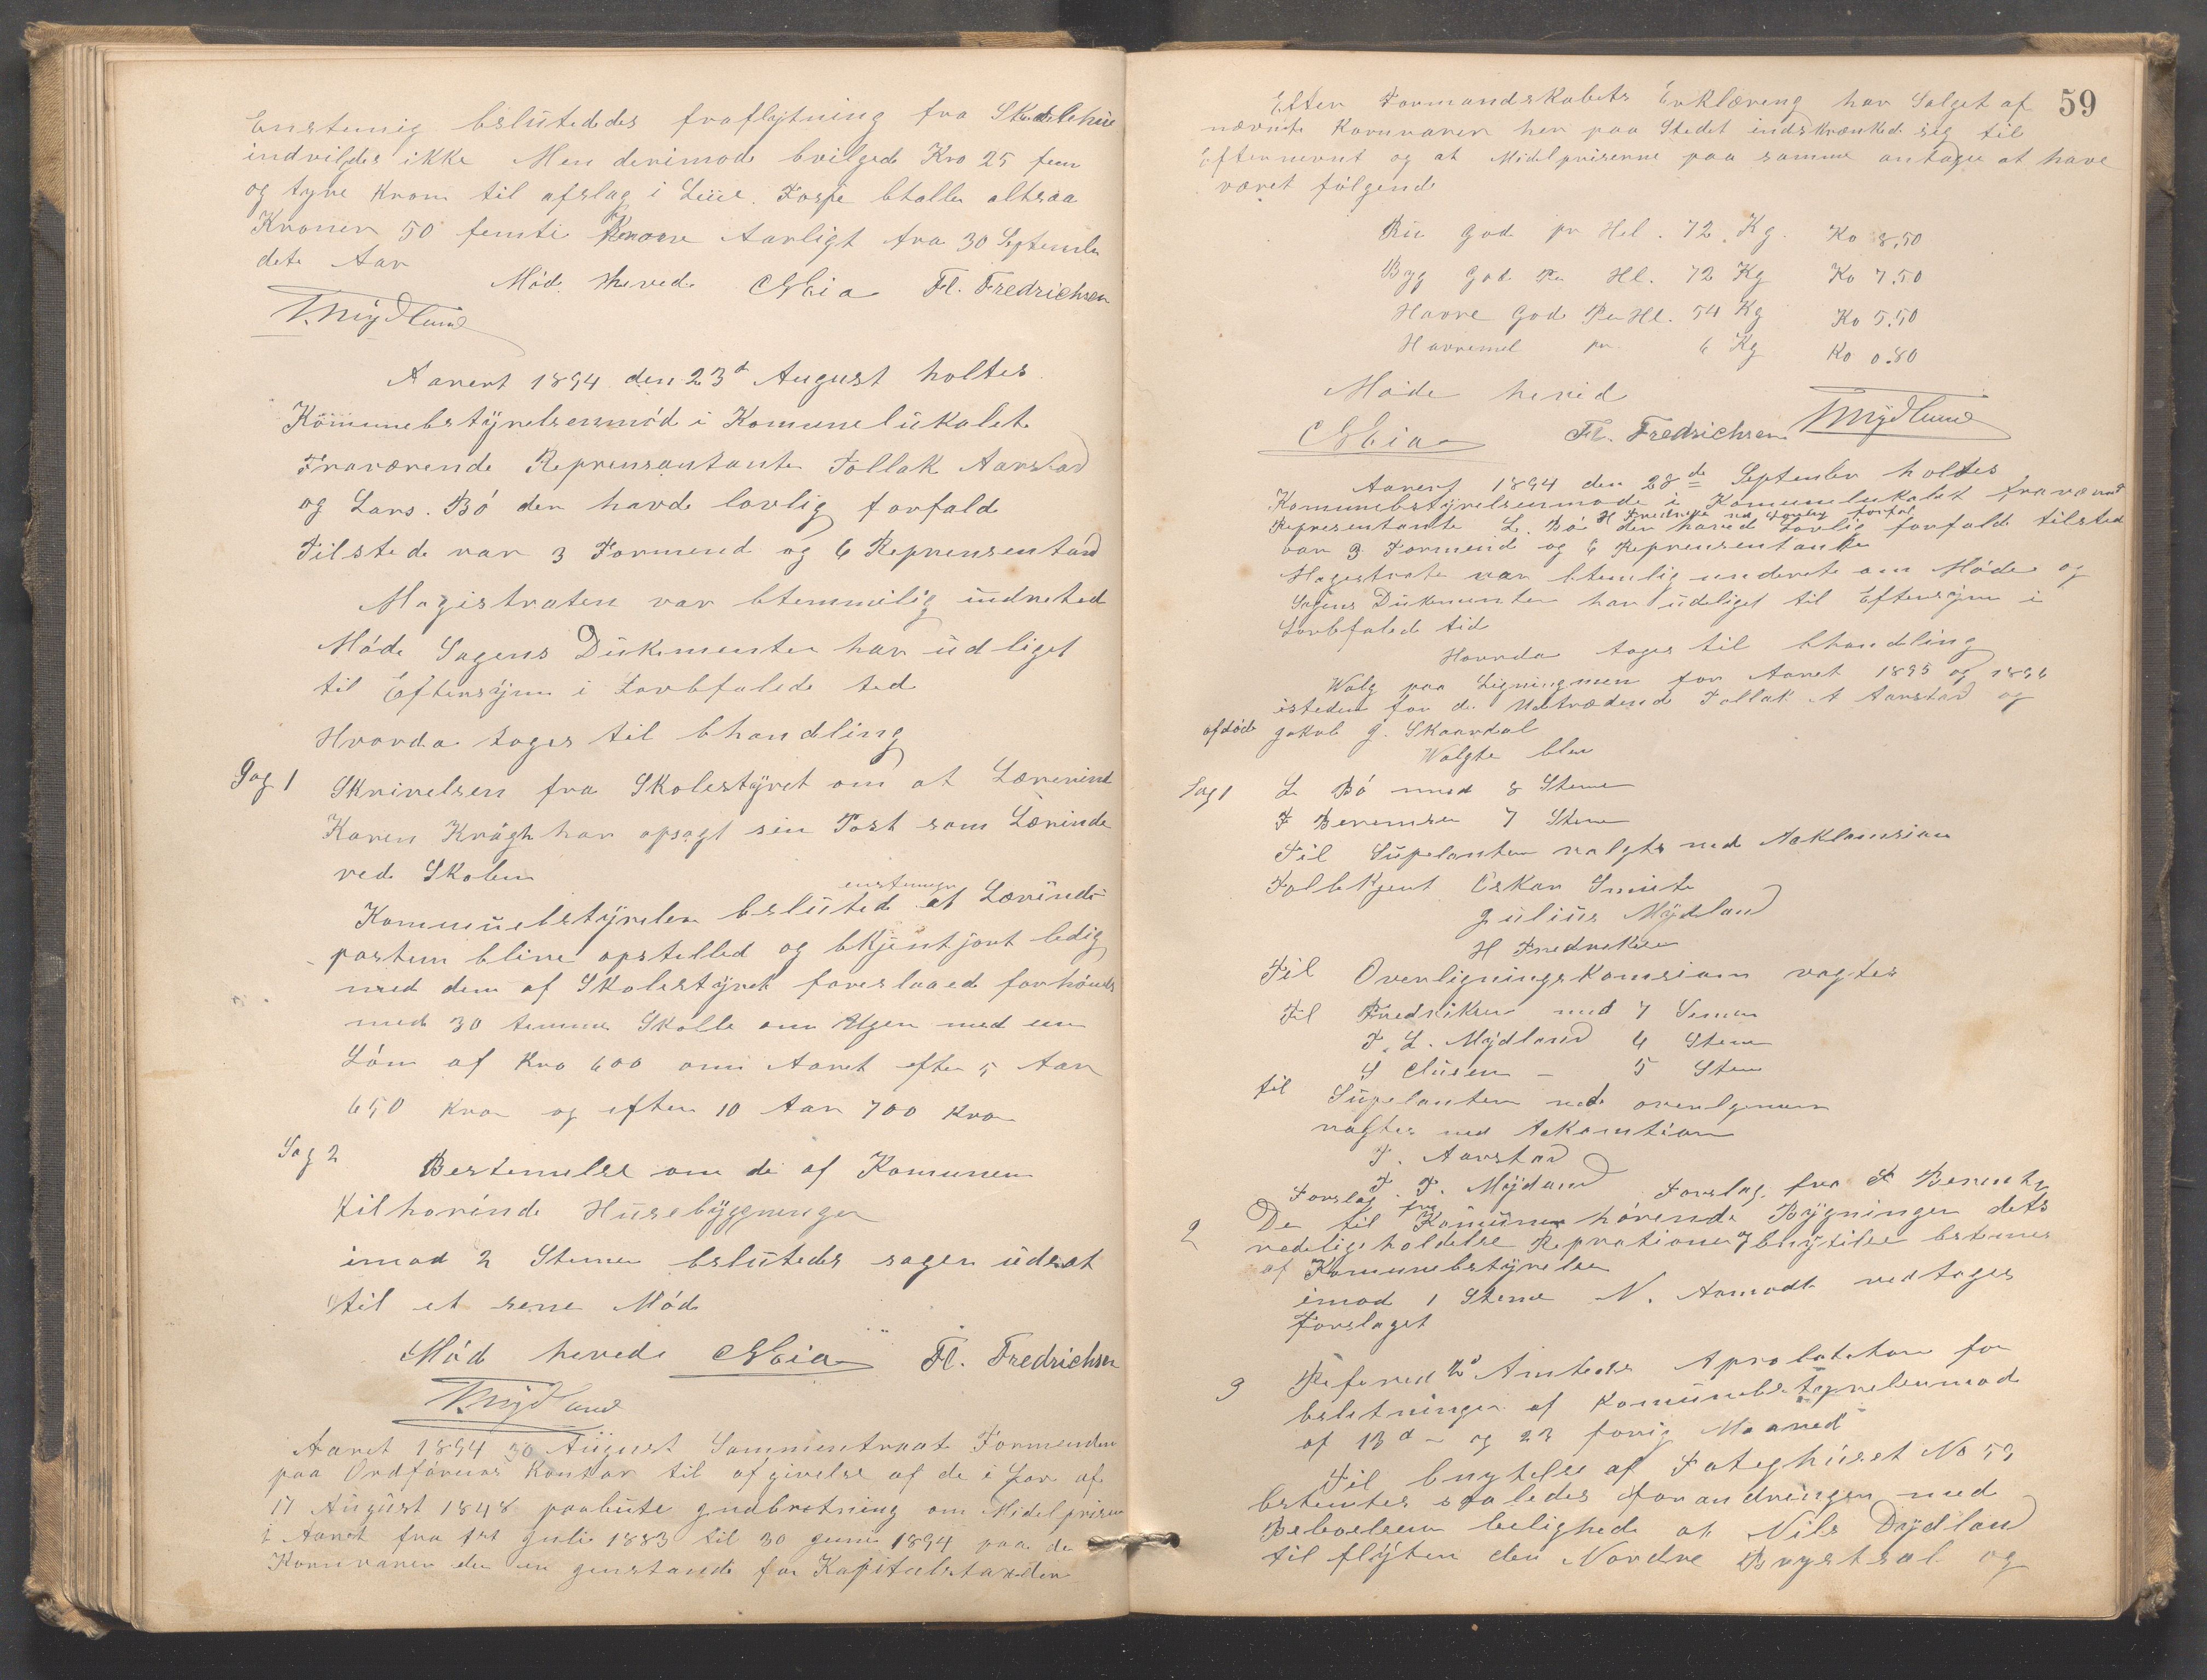 Enstemig beslutedes fraflytning fra
indvilges ikke Men derimode bvilgede Kro 25 fem
og tyve Kron til afslag i Leie. btalle altsaa
Kroner 50 femti Krone Aarligt fra 30 September
dete Aar
Møde hevede CMeia Fl. Fredrichsen
T. Mydland
Aarent 1894 den 23d August holtes
Kommunebstyrelsensmød i Komunelukalet
Fraværende Reprensantante Tollak Aarstad
og Lars. Bø der havde lovlig forfald
Tilstede var 3 Formend og 6 Reprensentand
Magistraten var btemmilig undreted
Møde Sagens Dukementer har udliget
til Eftersyn i Lovbfalede ted
Hvorda toges til bhandling
Sag 1 Skrivelsen fra Skolestyret om at Lærerind
Karen Krågh har opsagt sin Post som Lærinde
ved Skolen
enstemig
Kommunebstyrelsen bsluted at Lærinde
posten blive opstilled og bkjentjort ledig
med dem af Skolestyret foreslaaed forhøuels
med 30 temme Skolle om Ugen med een
Løn af Kro 600 om Aaret efter 5 Aar
650 Kro og efter 10 Aar 700 Kro
Sag 2 Bestemelse om de af Komunen
tilhørinde Husebyggninger
imod 2 Stemer bslutedes sagen udsat
til et sene Møde
Mød hevede CMeia Fl. Fredrichsen
T. Mydland
Aaret 1894 30 August Sammentraat Formenden
paa Ordførens Kontor til afgivelse af de i Lov af
17 August 1848 paabute indbretning om Midelprisen
i Aaret fra 1st Juli 1883 til 30 Juni 1894 paa de
Kornvarer der er genstande for Kapitalstaxten
59
Efter Formandskabets Erklæring har Salget af
nævnte Kornvarer her paa Stedet indskrænked sig til
Efternevnt og at Midelpriserne paa samme antages at have
været følgende
Rug god pr Hel. 72 Kg. Ko 8,50
Byg god Per Hl. 72 Kg Ko 7.50
Havre god Per Hl. 54 Kg Ko 5.50
Havremel pr. 6 Kg Ko 0.80
Møde hevid
CMeia Fl. Fredrichsen T. Mydland
Aarent 1894 den 28de September holdes
Komunebstyrelsenmøde i Komunelukalet fraværend
H Fredrikse forfal
Representante L. Bø der haved Lovlig forfald tilsted
var 3 Formend og 6 Reprensentante
Magestrate var btemlig underet om Møde og
Sagens Dukumenter har udeliget til Eftersyn i
Lovbfalede tid
Hvorda toges til bhandling
Walg paa Ligningmen for Aaret 1895 og 1896
isteden for de Udtrædend Tollak A Aarstad og
afdøde Jakob G. Skaardal
Walgte blev
Sag 1 L Bø med 8 Steme
F Berensen 7 Steme
Til Supelanter valgte med Aklamsion
Folbkjent Oskar Smiste
Julius Mydland
H Fredriksen
Til Overligningskomsion vagtes
Til Fredriksen med 7 Semer
T. L. Mydland 6 Steme
S Clusen – 5 Steme
til Supelanter
vagtes med
T. Aarstad
T. T. Mydland
Forslag Forslag fra F Berentsen
2 De til Komunen hørende Bygninger dets
vedeligeholdelse Reprationer og bnytilse bstemes
af Komunebstyrelsen
imod 1 Steme N. Aamodt vedtages
Forslaget
3 Refered Amtets Aprolatation for
beslutninger af Komunebstyrelsenmød
af 13d – og 23 forrig Maaned
Til bnytelse af Fateghuset No 53
bstemtes saaledes forandringen med
Beboelsen leilighede at Nils Dydland
til flyten den Nordre Brystsal og